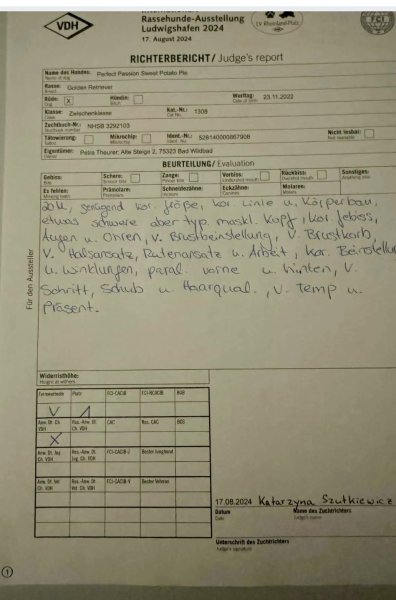 VDH
Rassehunde-Ausstellung
Ludwigshafen 2024
17. August 2024
LV Rheinland-Pfalz
FCI
RICHTERBERICHT/ Judge's report
Name des Hundes: Perfect Passion Sweet Potato Pie
Name of dog
Rasse: Golden Retriever
Breed
Rüde: X Hündin: Wurftag: 23.11.2022
Dog Bitch Date of birth
Klasse: Zwischenklasse Kat.-Nr.: 1308
Class Cat. No.
Zuchtbuch-Nr.: NHSB 3292103
Studbook number
Tätowierung: Mikrochip: Ident.-No: 528140000867908 Nicht lesbar:
Tattoo Microchip Ident. No. Not readable
Eigentümer: Petra Theurer; Alte Steige 2, 75323 Bad Wildbad
Owner
BEURTEILUNG/ Evaluation
Gebiss: Schere: Zange: Vorbiss: Rückbiss: Sonstiges:
Bite Scissor bite Pincer bite Undershot mouth Overshot mouth Anything else
Es fehlen: Prämolare: Schneidezähne: Eckzähne: Molare:
Missing teeth Premolars Incisors Canines Molars
kor. Größe, kor Linie u. Körperbau,
etwas schwere aber typ. maskl. Kopf, kor. Gebiss,
Augen u. Ohren, V. Brustbeinstellung, V. Brustkorb,
V. Halsansatz, Rutenansatz u. Arbeit, kor. Beinstellung
u. Winklungen, paral. vorne u. hinten, V.
Schritt, Schub u. Haarqual., V. Temp u.
Präsent.
Für den Aussteller
Widerristhöhe:
Height at withers
Formwertnote Platz FCI-CACIB FCI-RCACIB BOB
V 1
Anw. Dt. Ch. VDH Res.-Anw. Dt. Ch. VDH CAC Res. CAC BOS
X
Anw. Dt. Jug. Ch. VDH Res.-Anw. Dt. Jug. Ch. VDH FCI-CACIB-J Bester Junghund
Anw. Dt. Vet. Ch. VDH Res.-Anw. Dt. Vet. Ch. VDH FCI-CACIB-V Bester Veteran
17.08.2024 Katarzyna Szutkiewicz
Datum Name des Zuchtrichters
Date Judge's name
Unterschrift des Zuchtrichters
Judge's signature
1